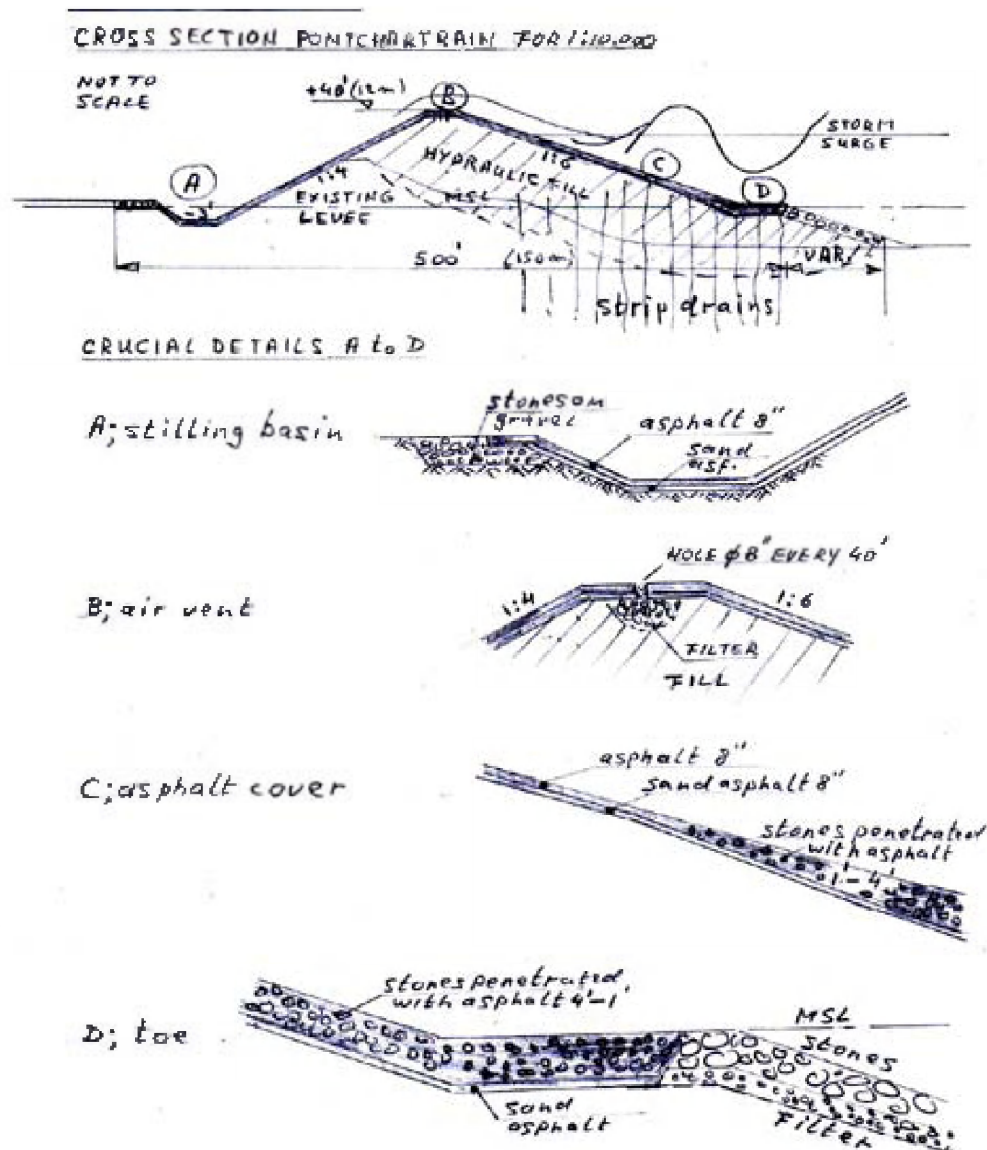 CROSS SECTION PONTCHARTRAIN FOR 1:10.000
NOT TO
SCALE
+40' (12m)
B
STORM
SURGE
A
1:4
HYDRAULIC FILL
1:6
C
D
EXISTING
LEVEE
MSL
500' (150m)
VAR.
strip drains
CRUCIAL DETAILS A to D
A; stilling basin
stones on
gravel
asphalt 8"
sand
asf.
B; air vent
HOLE φ8" EVERY 40'
1:4
1:6
FILTER
FILL
C; asphalt cover
asphalt 8"
sand asphalt 8"
stones penetrated
with asphalt
1'-4'
D; toe
stones penetrated
with asphalt 4'-1'
MSL
stones
sand
asphalt
Filter